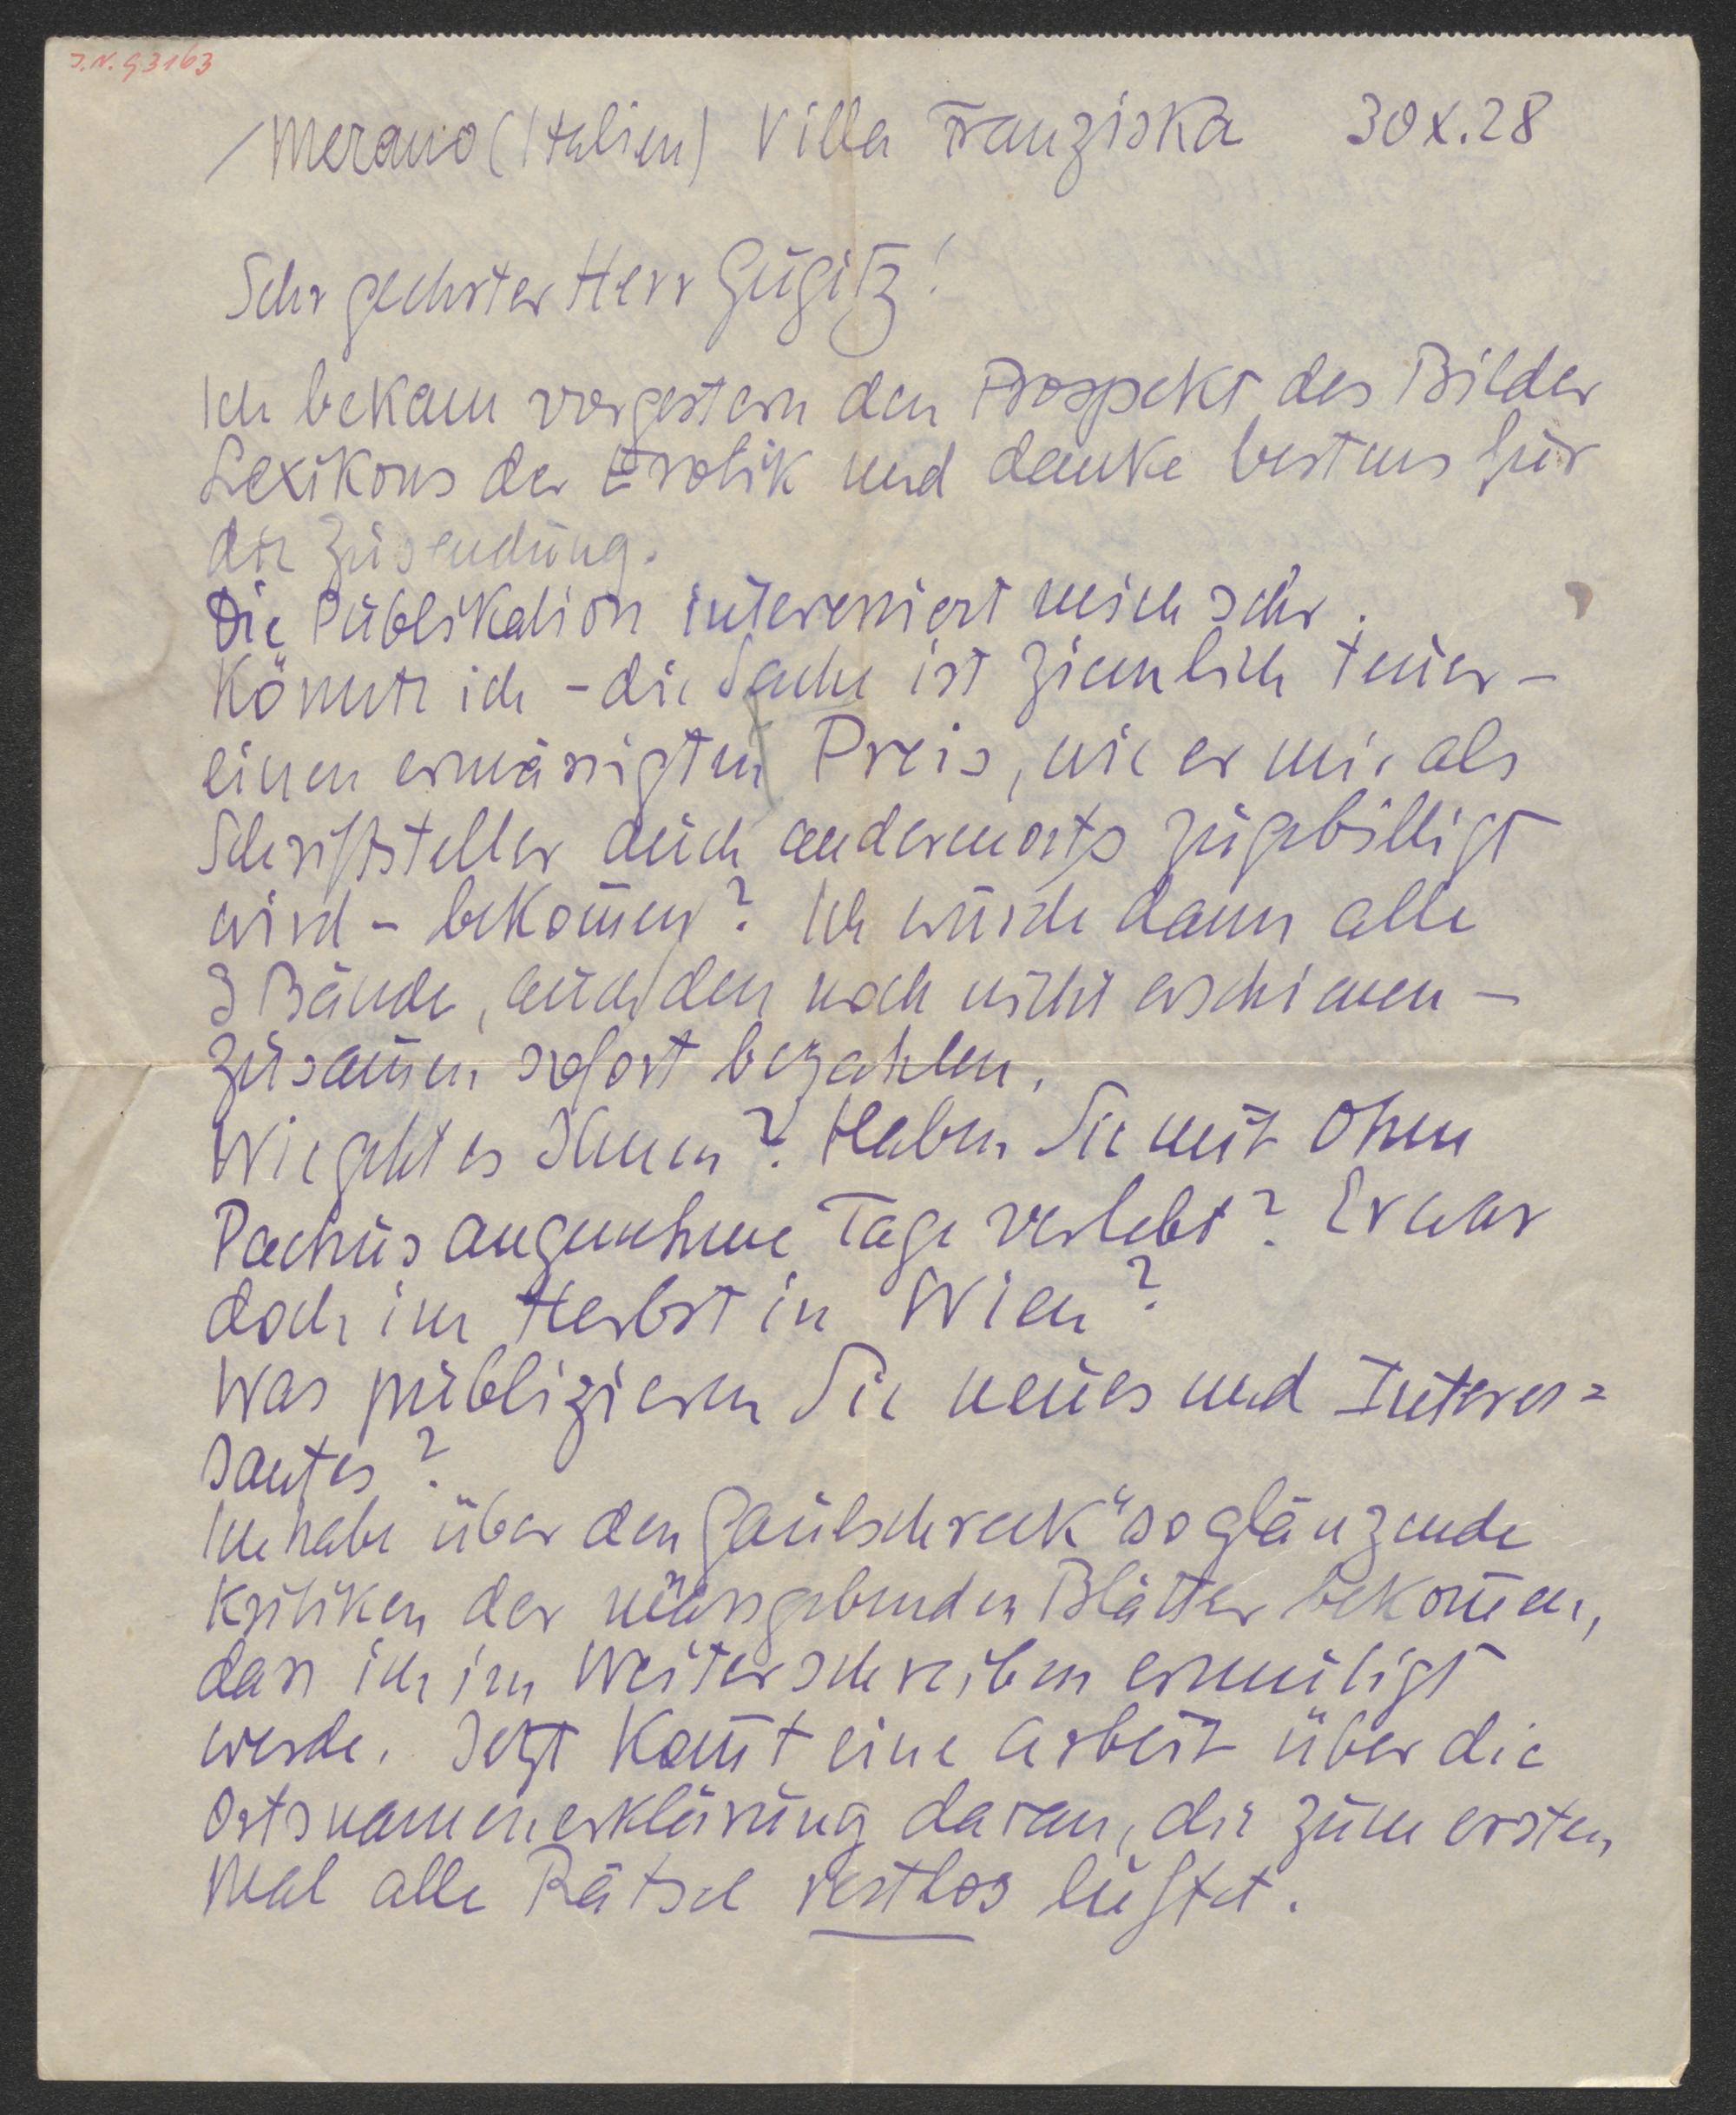 I.N. 93163
Merano (Italien) Villa Franziska 30 X. 28
Sehr geehrter Herr Gugitz!
Ich bekam vorgestern den Prospekt des Bilder
Lexikons der Erotik und danke bestens für
die Zusendung.
Die Publikation interessiert mich sehr.
Könnte ich – die Sache ist ziemlich teuer –
einen ermässigten Preis, wie er mir als
Schriftsteller auch anderenorts zugebilligt
wird – bekom̄en? Ich würde dann alle
3 Bände, auch den noch nicht erschienen –
zusam̄en sofort bezahlen.
Wie geht es Ihnen? Haben Sie mit Ohm
Pachus angenehme Tage verlebt? Er war
doch im Herbst in Wien?
Was publizieren Sie neues und Interes=
santes?
Ich habe über den Gaulschreck" so glänzende
Kritiken der massgebenden Blätter bekom̄en,
dass ich im Weiterschreiben ermutigt
werde. Jetzt kom̄t eine Arbeit über die
Ortsnamenerklärung daran, die zum ersten
Mal alle Rätsel restlos lüftet.